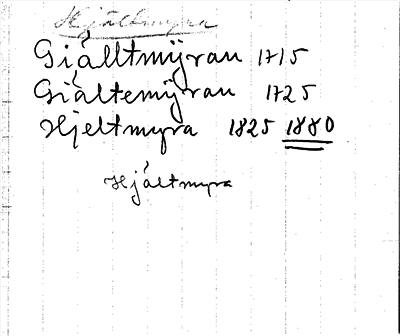 Hjältmyra
Giälltmÿran 1715
Giältemÿran 1725
Hjeltmyra 1825 1880
Hjältmyra